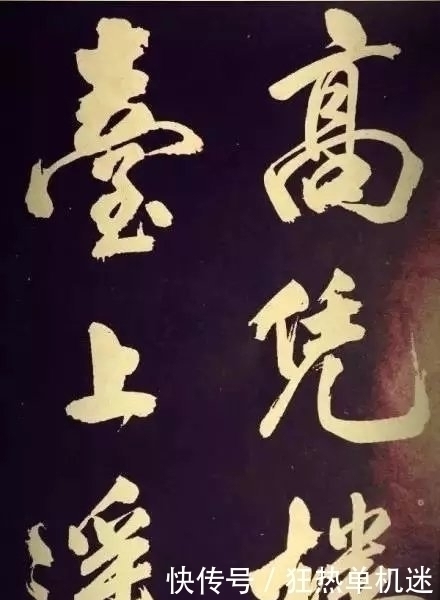 高凭
臺上
快传号 / 狂热单机迷